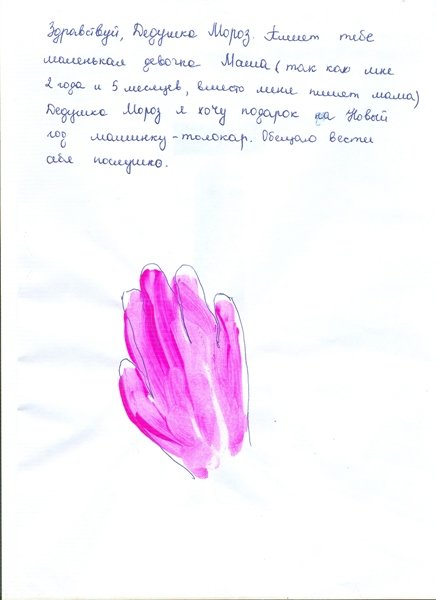 Здравствуй, Дедушка Мороз. Пишет тебе
маленькая девочка Маша (так как мне
2 года и 5 месяцев, вместо меня пишет мама)
Дедушка Мороз я хочу подарок на Новый
год машинку-толокар. Обещаю вести
себя послушно.